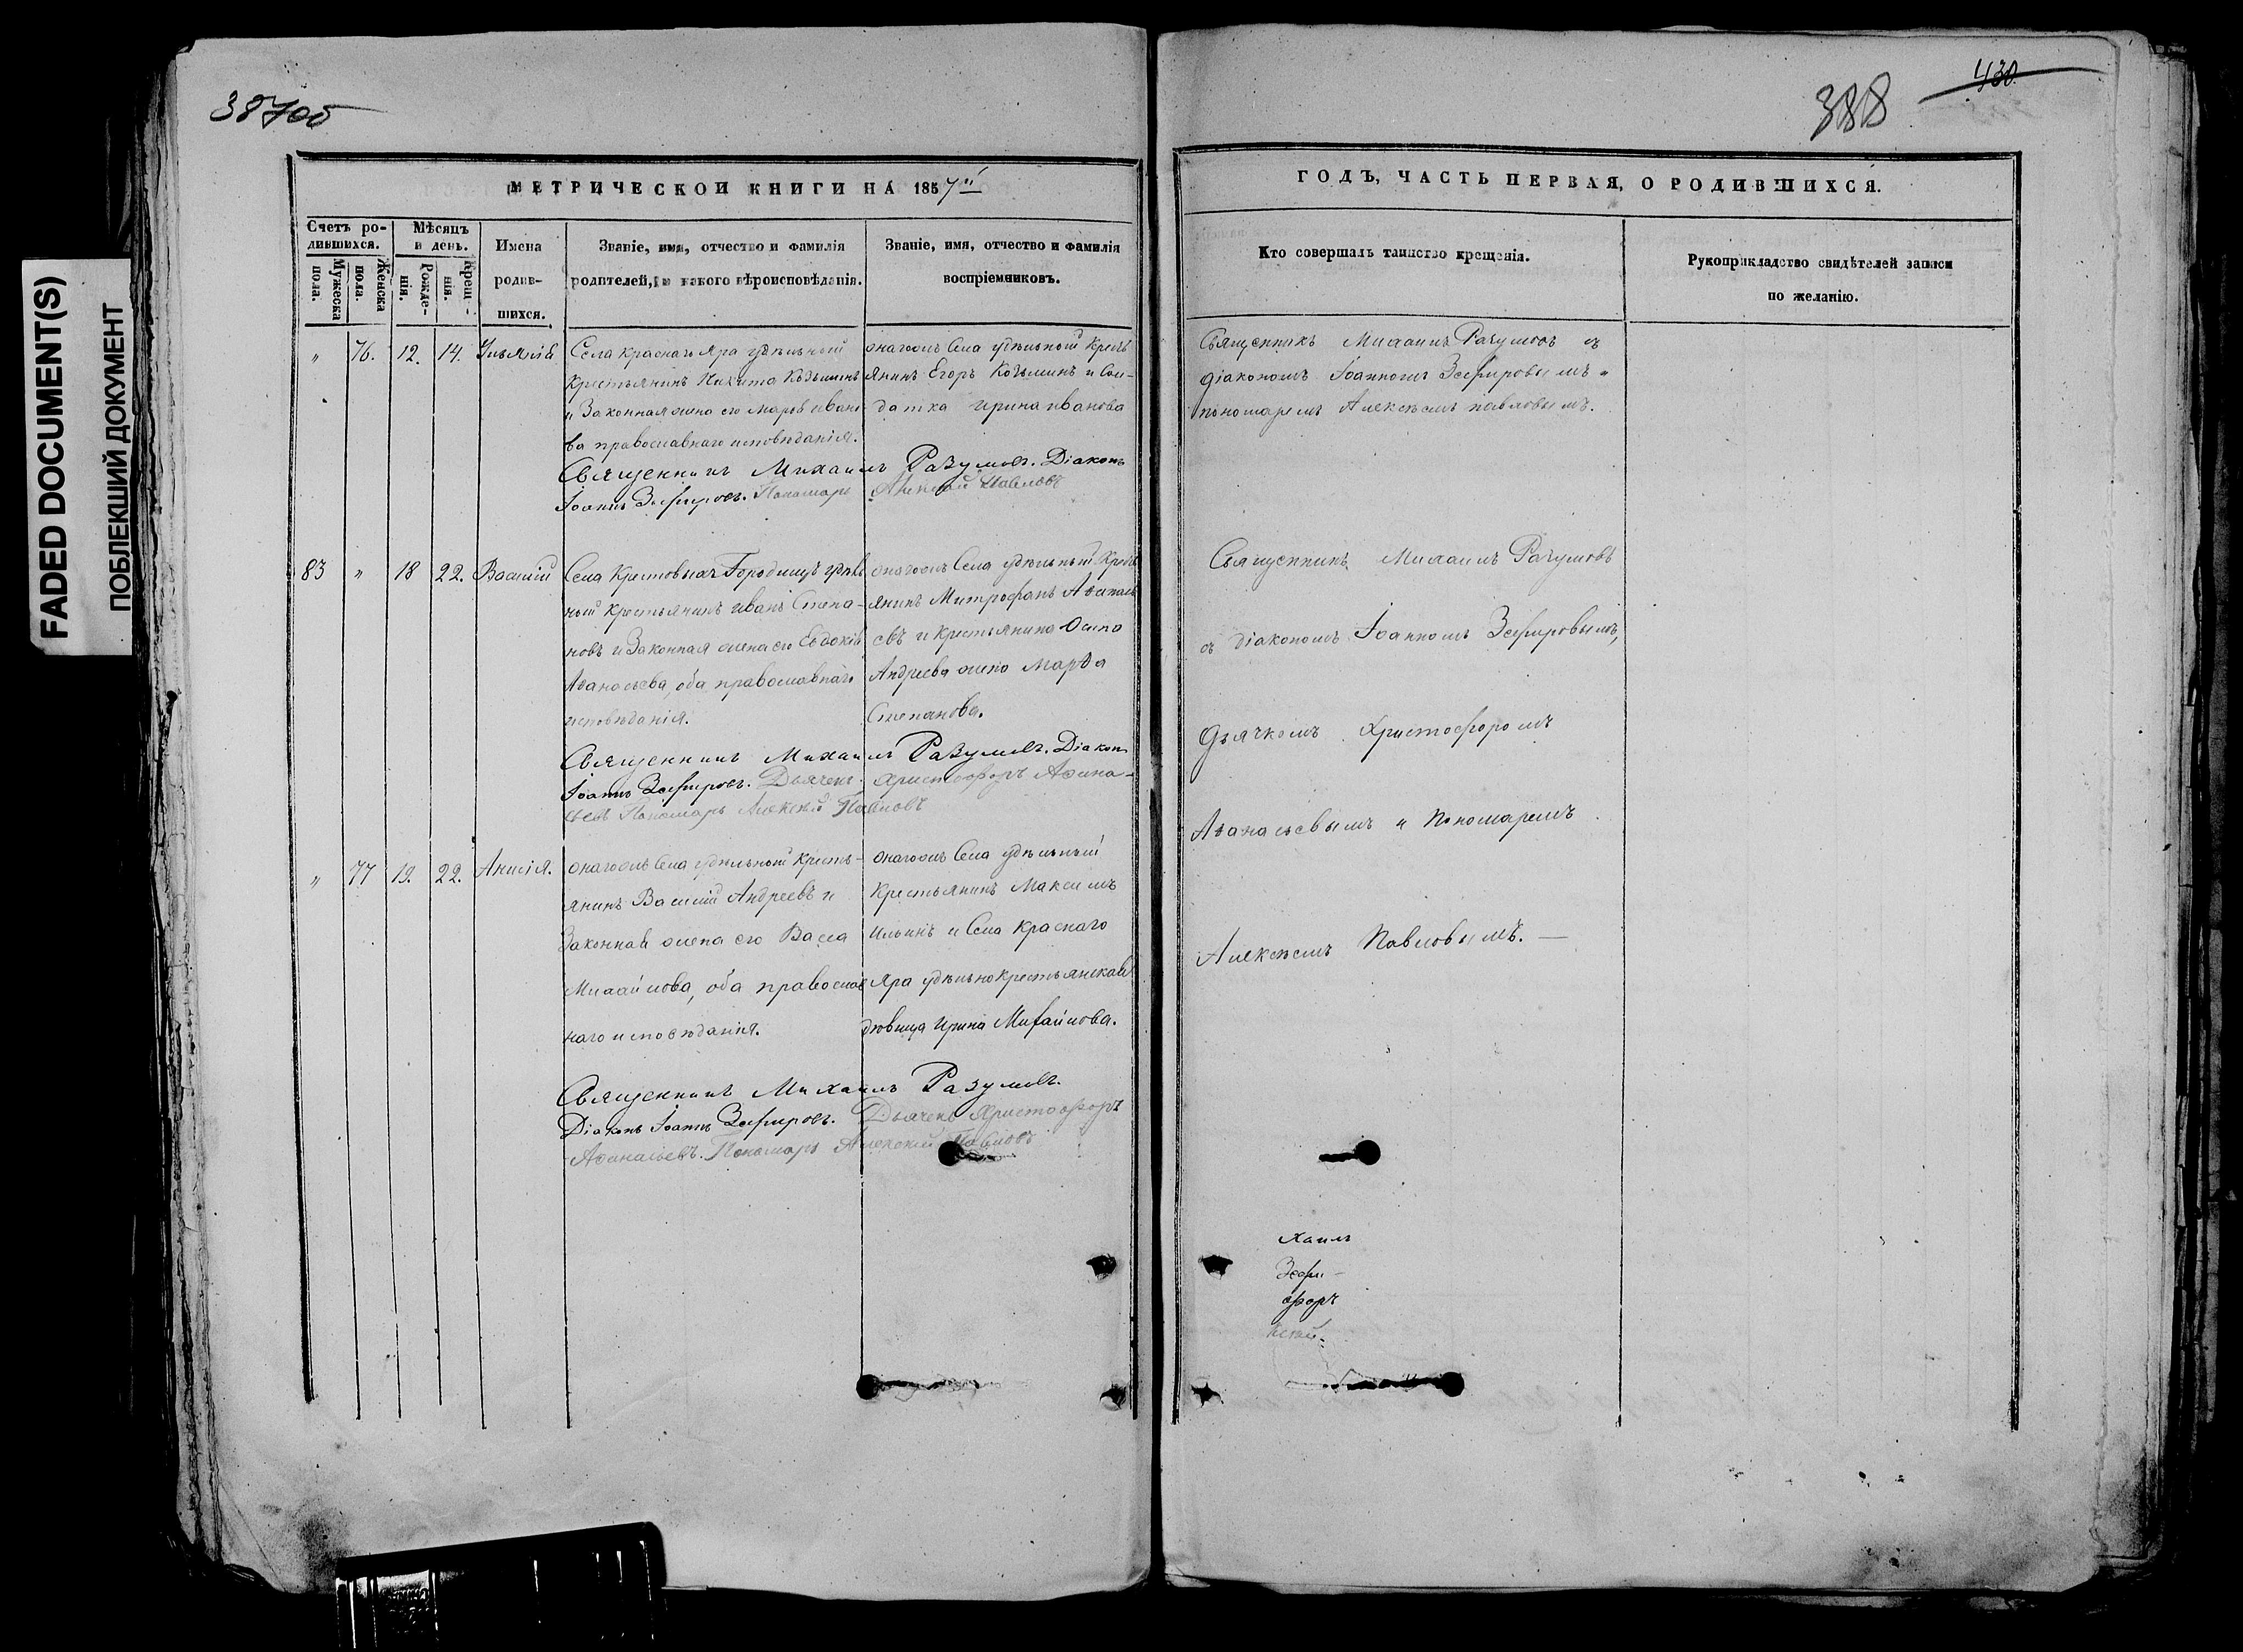 38705
388
430.
FADED DOCUMENT(S)
ПОБЛЕКШИЙ ДОКУМЕНТ
МЕТРИЧЕСКОЙ КНИГИ НА 1857й
Счетъ родившихся.
Мужеска пола.
Женска пола.
Мѣсяцъ и день.
Рожденія.
Крещенія.
Имена родившихся.
Званіе, имя, отчество и фамилія
родителей, и какого вѣроисповѣданія.
Званіе, имя, отчество и фамилія
воспріемниковъ.
" 76. 12. 14.
Села Краснаго Яра удѣльной
Крестьянинъ Никита Козьминъ
и Законная жена его Марѳа Ивано-
ва православнаго исповѣданія.
онагожъ Села удѣльной Кресть
янинъ Егоръ Козьминъ и Сол-
датка Ирина Иванова
Священникъ Михаилъ Разумовъ. Діаконъ
Іоаннъ Зефировъ. Пономарь Алексѣй Павловъ
83 " 18 22. Василій
Села Крестовыхъ Городищъ удѣль
ный Крестьянинъ Иванъ Степа-
новъ и Законная жена его Евдокія
Аѳанасьева, оба православнаго
исповѣданія.
онагожъ Села удѣльный Кресть
янинъ Митрофанъ Аѳанась
евъ и Крестьянина Осипа
Андреева жена Марѳа
Степанова.
Священникъ Михаилъ Разумовъ. Діаконъ
Іоаннъ Зефировъ. Дьячекъ Христофоръ Аѳана-
сьевъ Пономарь Алексѣй Павловъ
" 77 19. 22. Анисія.
онагожъ Села удѣльной Кресть-
янинъ Василій Андреевъ и
Законная жена его Васса
Михайлова, оба православ
наго исповѣданія.
онагожъ Села удѣльный
Крестьянинъ Максимъ
Ильинъ и Села Краснаго
Яра удѣльнокрестьянская
дѣвица Ирина Михайлова.
Священникъ Михаилъ Разумовъ.
Діаконъ Іоаннъ Зефировъ. Дьячекъ Христофоръ
Аѳанасьевъ. Пономарь Алексѣй Павловъ
ГОДЪ, ЧАСТЬ ПЕРВАЯ, О РОДИВШИХСЯ.
Кто совершалъ таинство крещенія.
Рукоприкладство свидѣтелей записи
по желанію.
Священникъ Михаилъ Разумовъ съ
діакономъ Іоанномъ Зефировымъ и
пономаремъ Алексѣемъ Павловымъ.
Священникъ Михаилъ Разумовъ
съ діакономъ Іоанномъ Зефировымъ,
дьячкомъ Христофоромъ
Аѳанасьевымъ и Пономаремъ
Алексѣемъ Павловымъ. —
хаилъ
Зефи-
форъ
ксѣй